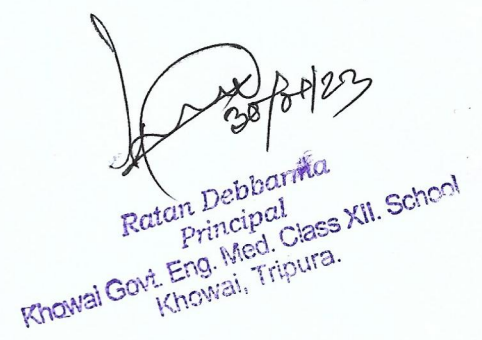 Ratan Debbarma
Principal
Khowai Govt. Eng. Med. Class XII. School
Khowai, Tripura.